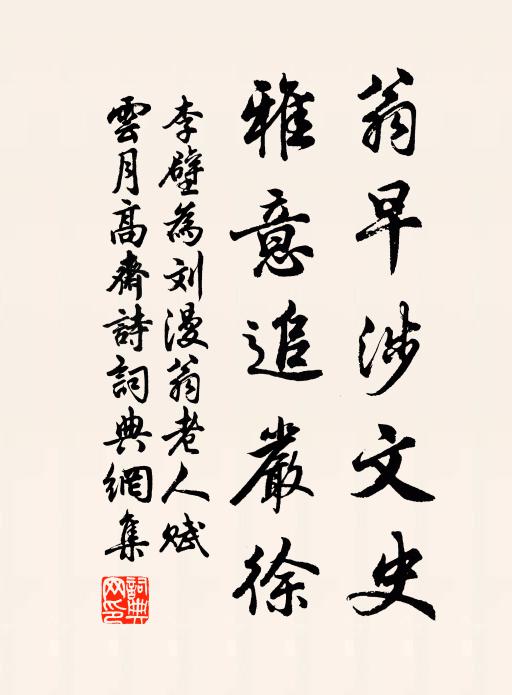 翁早涉文史
雅意追嚴徐
李壁為刘漫翁老人赋
雲月高齋詩詞典網集
詞典网印